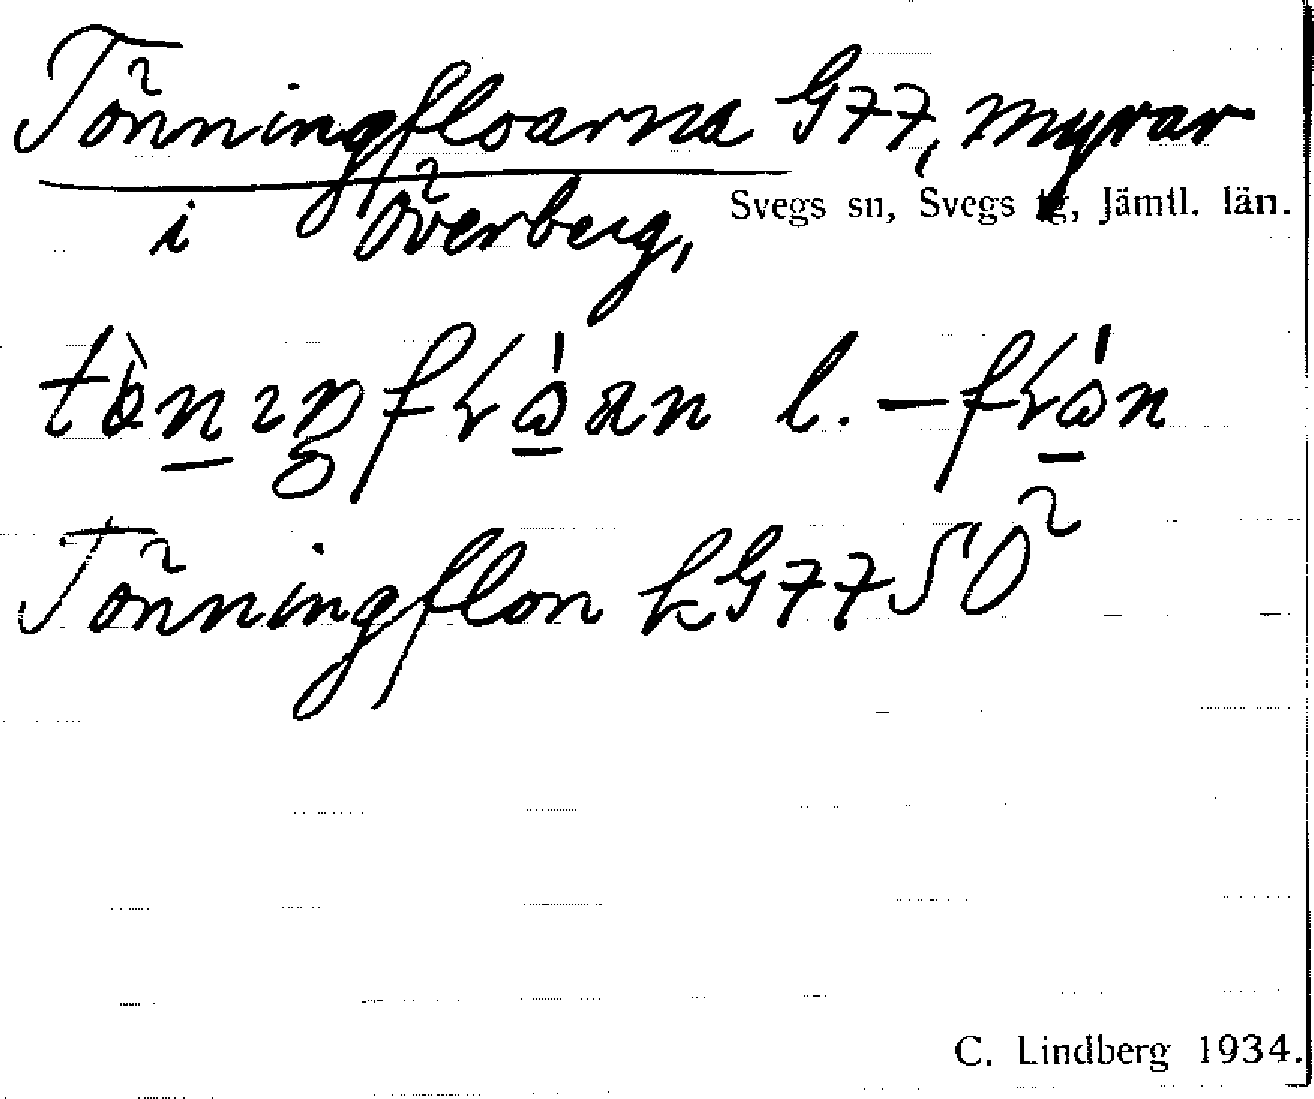 Tönningfloarna G77, myrar
i Överberg, Svegs sn, Svegs tg, Jämtl. län.
l.
Tönningflon kG77SÖ
C. Lindberg 1934.